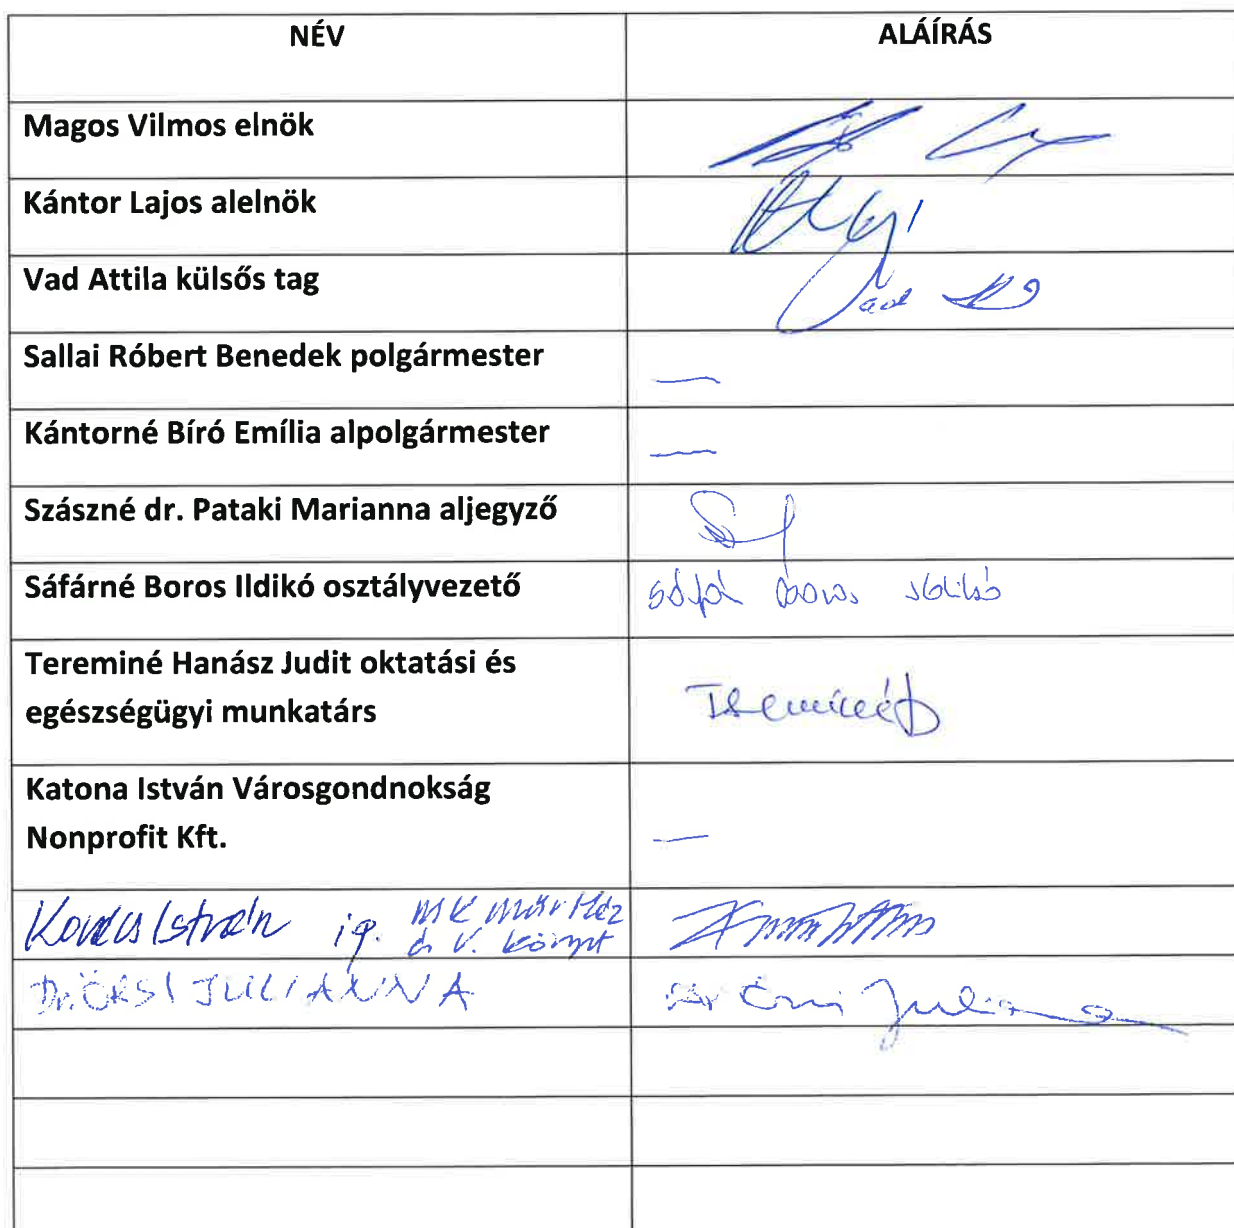 NÉV
ALÁÍRÁS
Magos Vilmos elnök
Kántor Lajos alelnök
Vad Attila külsős tag
Vad
Sallai Róbert Benedek polgármester
—
Kántorné Bíró Emília alpolgármester
—
Szászné dr. Pataki Marianna aljegyző
Sáfárné Boros Ildikó osztályvezető
Sáfár Boros Ildikó
Tereminé Hanász Judit oktatási és
egészségügyi munkatárs
Tereminé
Katona István Városgondnokság
Nonprofit Kft.
—
Kovács István ig. MK Műv Ház
és V. Könyvt
Dr. ÖRSI JULIANNA
Dr Örsi Julianna